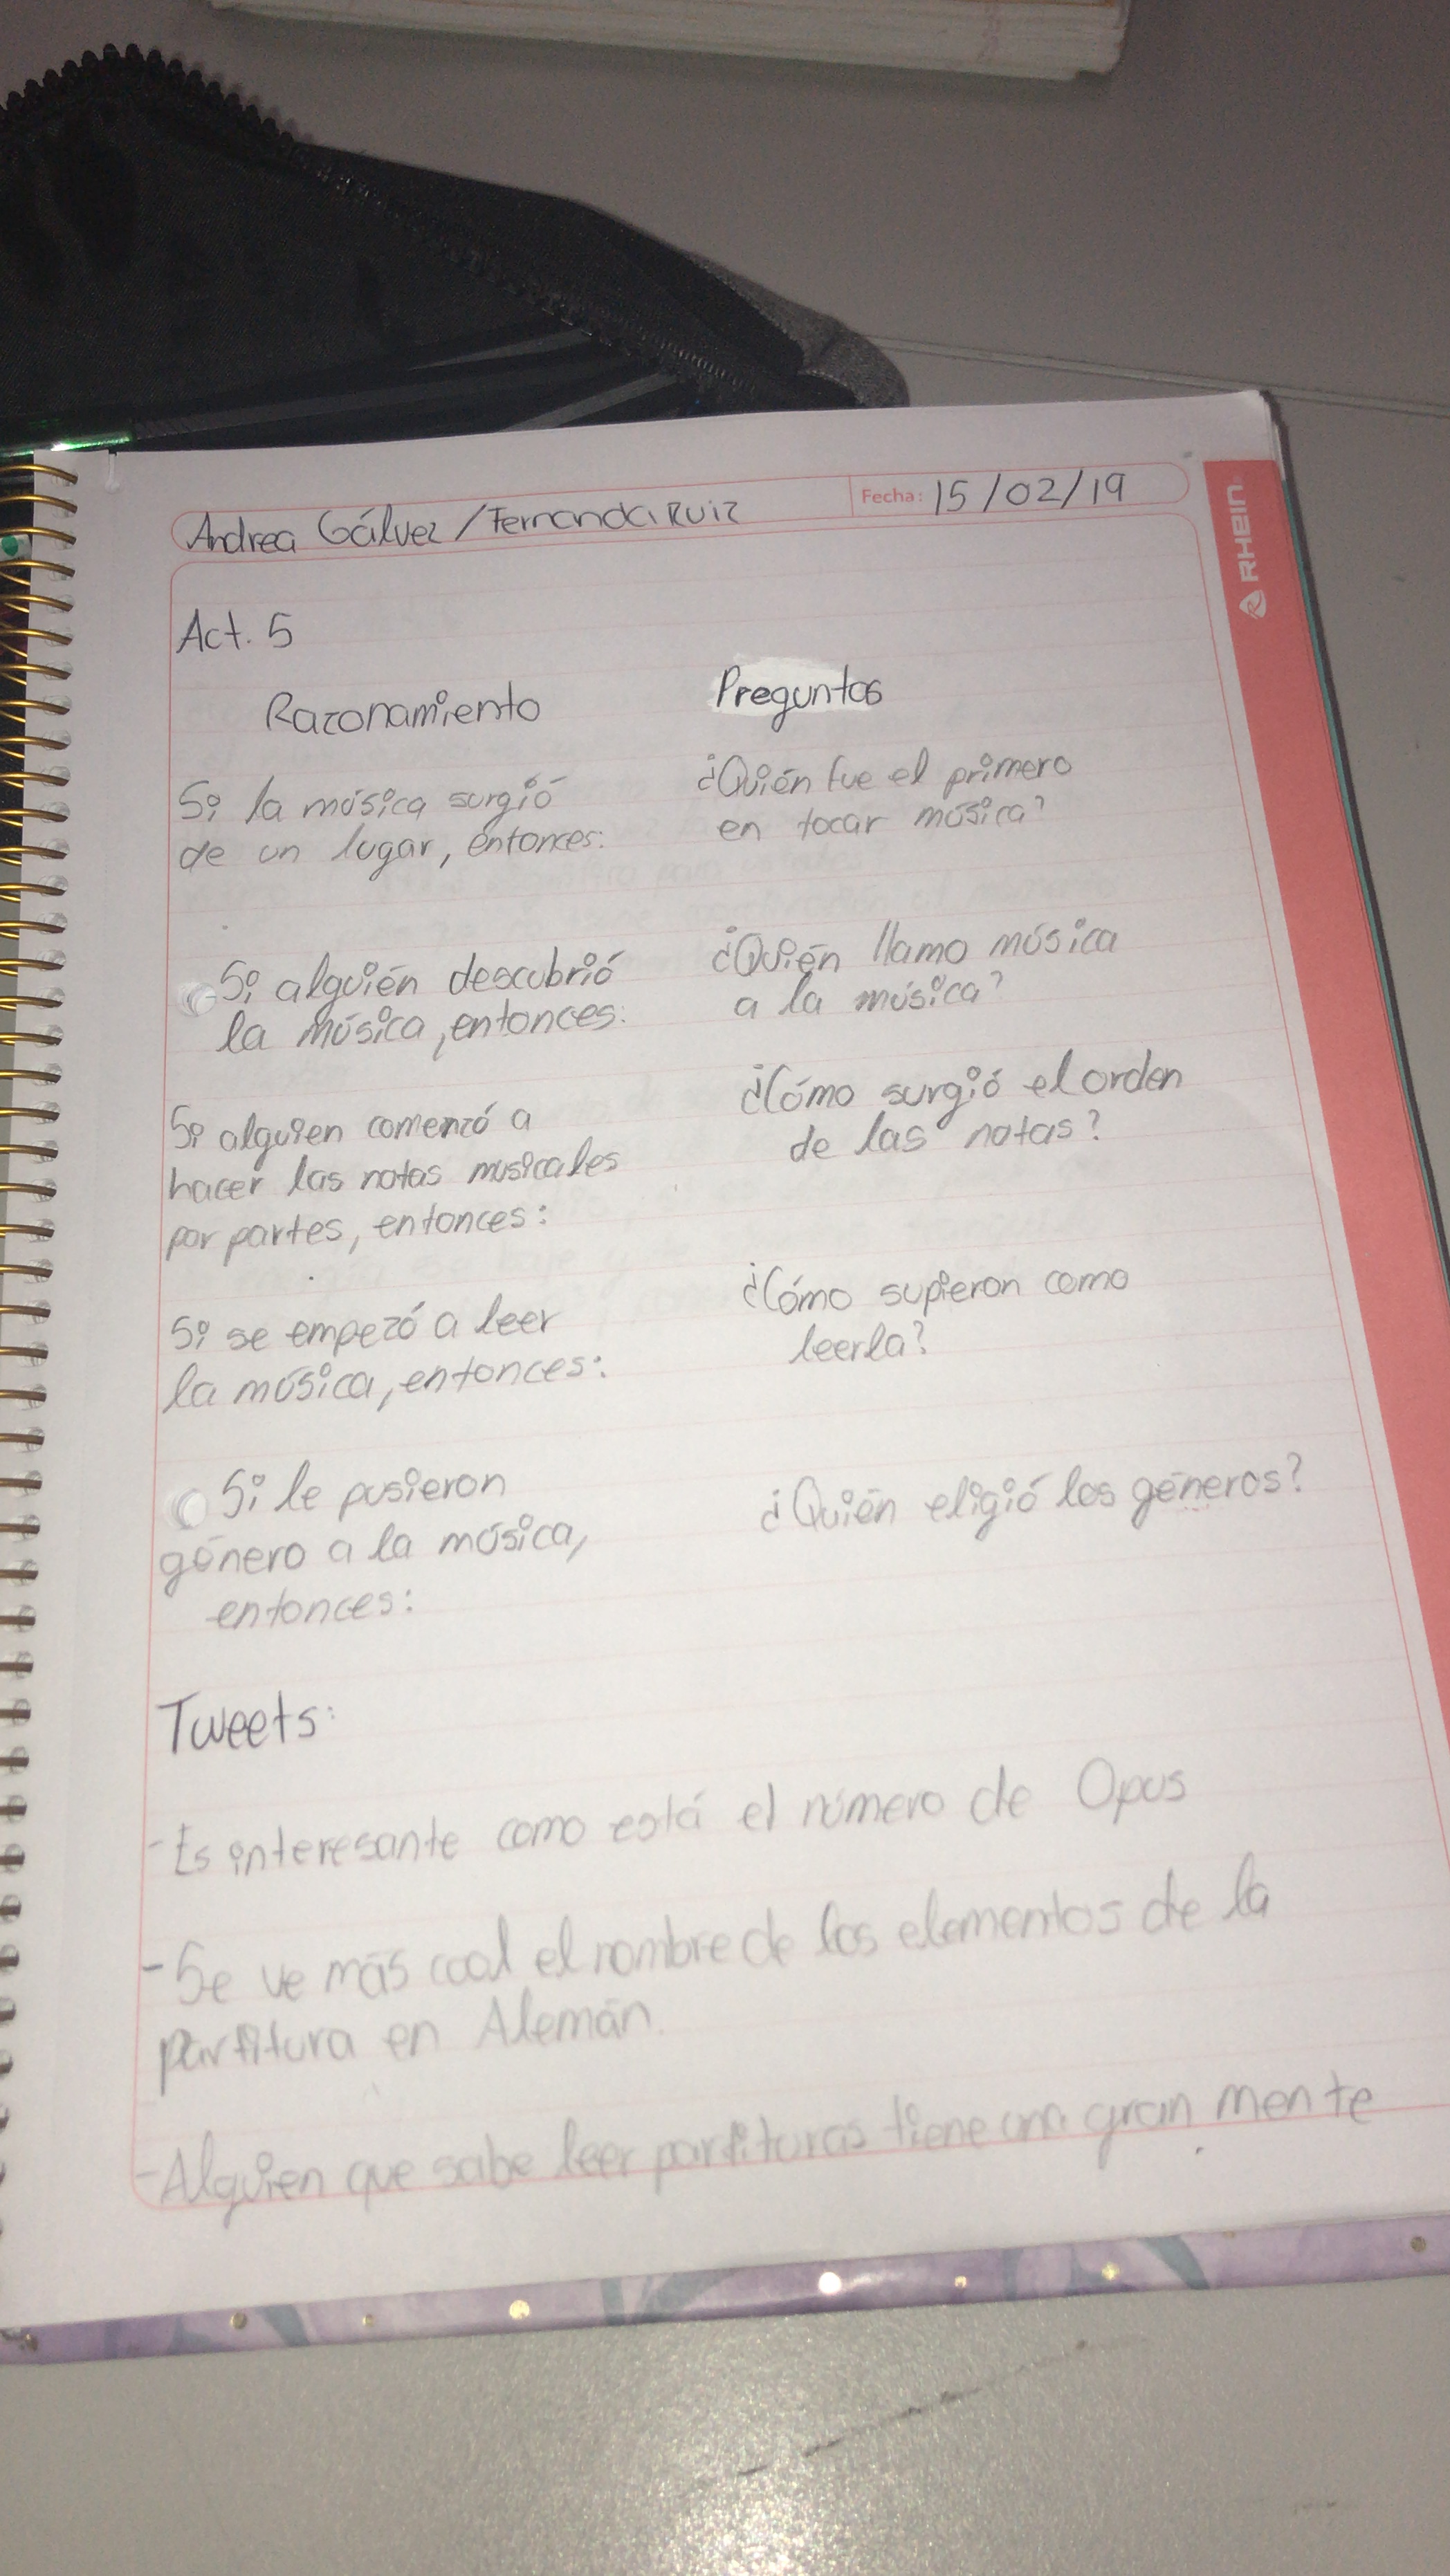 Andrea Gálvez / Fernanda Ruiz
Fecha: 15/02/19
RHEIN
Act. 5
Razonamiento
Preguntas
Si la música surgió
de un lugar, entonces:
¿Quién fue el primero
en tocar música?
Si alguién descubrió
la música, entonces:
¿Quién llamo música
a la música?
Si alguien comenzó a
hacer las notas musicales
por partes, entonces:
¿Cómo surgió el orden
de las notas?
Si se empezó a leer
la música, entonces:
¿Cómo supieron como
leerla?
Si le pusieron
género a la música,
entonces:
¿Quién eligió los géneros?
Tweets:
-Es interesante como está el número de Opus
-Se ve más cool el nombre de los elementos de la
partitura en Alemán.
-Alguien que sabe leer partituras tiene una gran mente